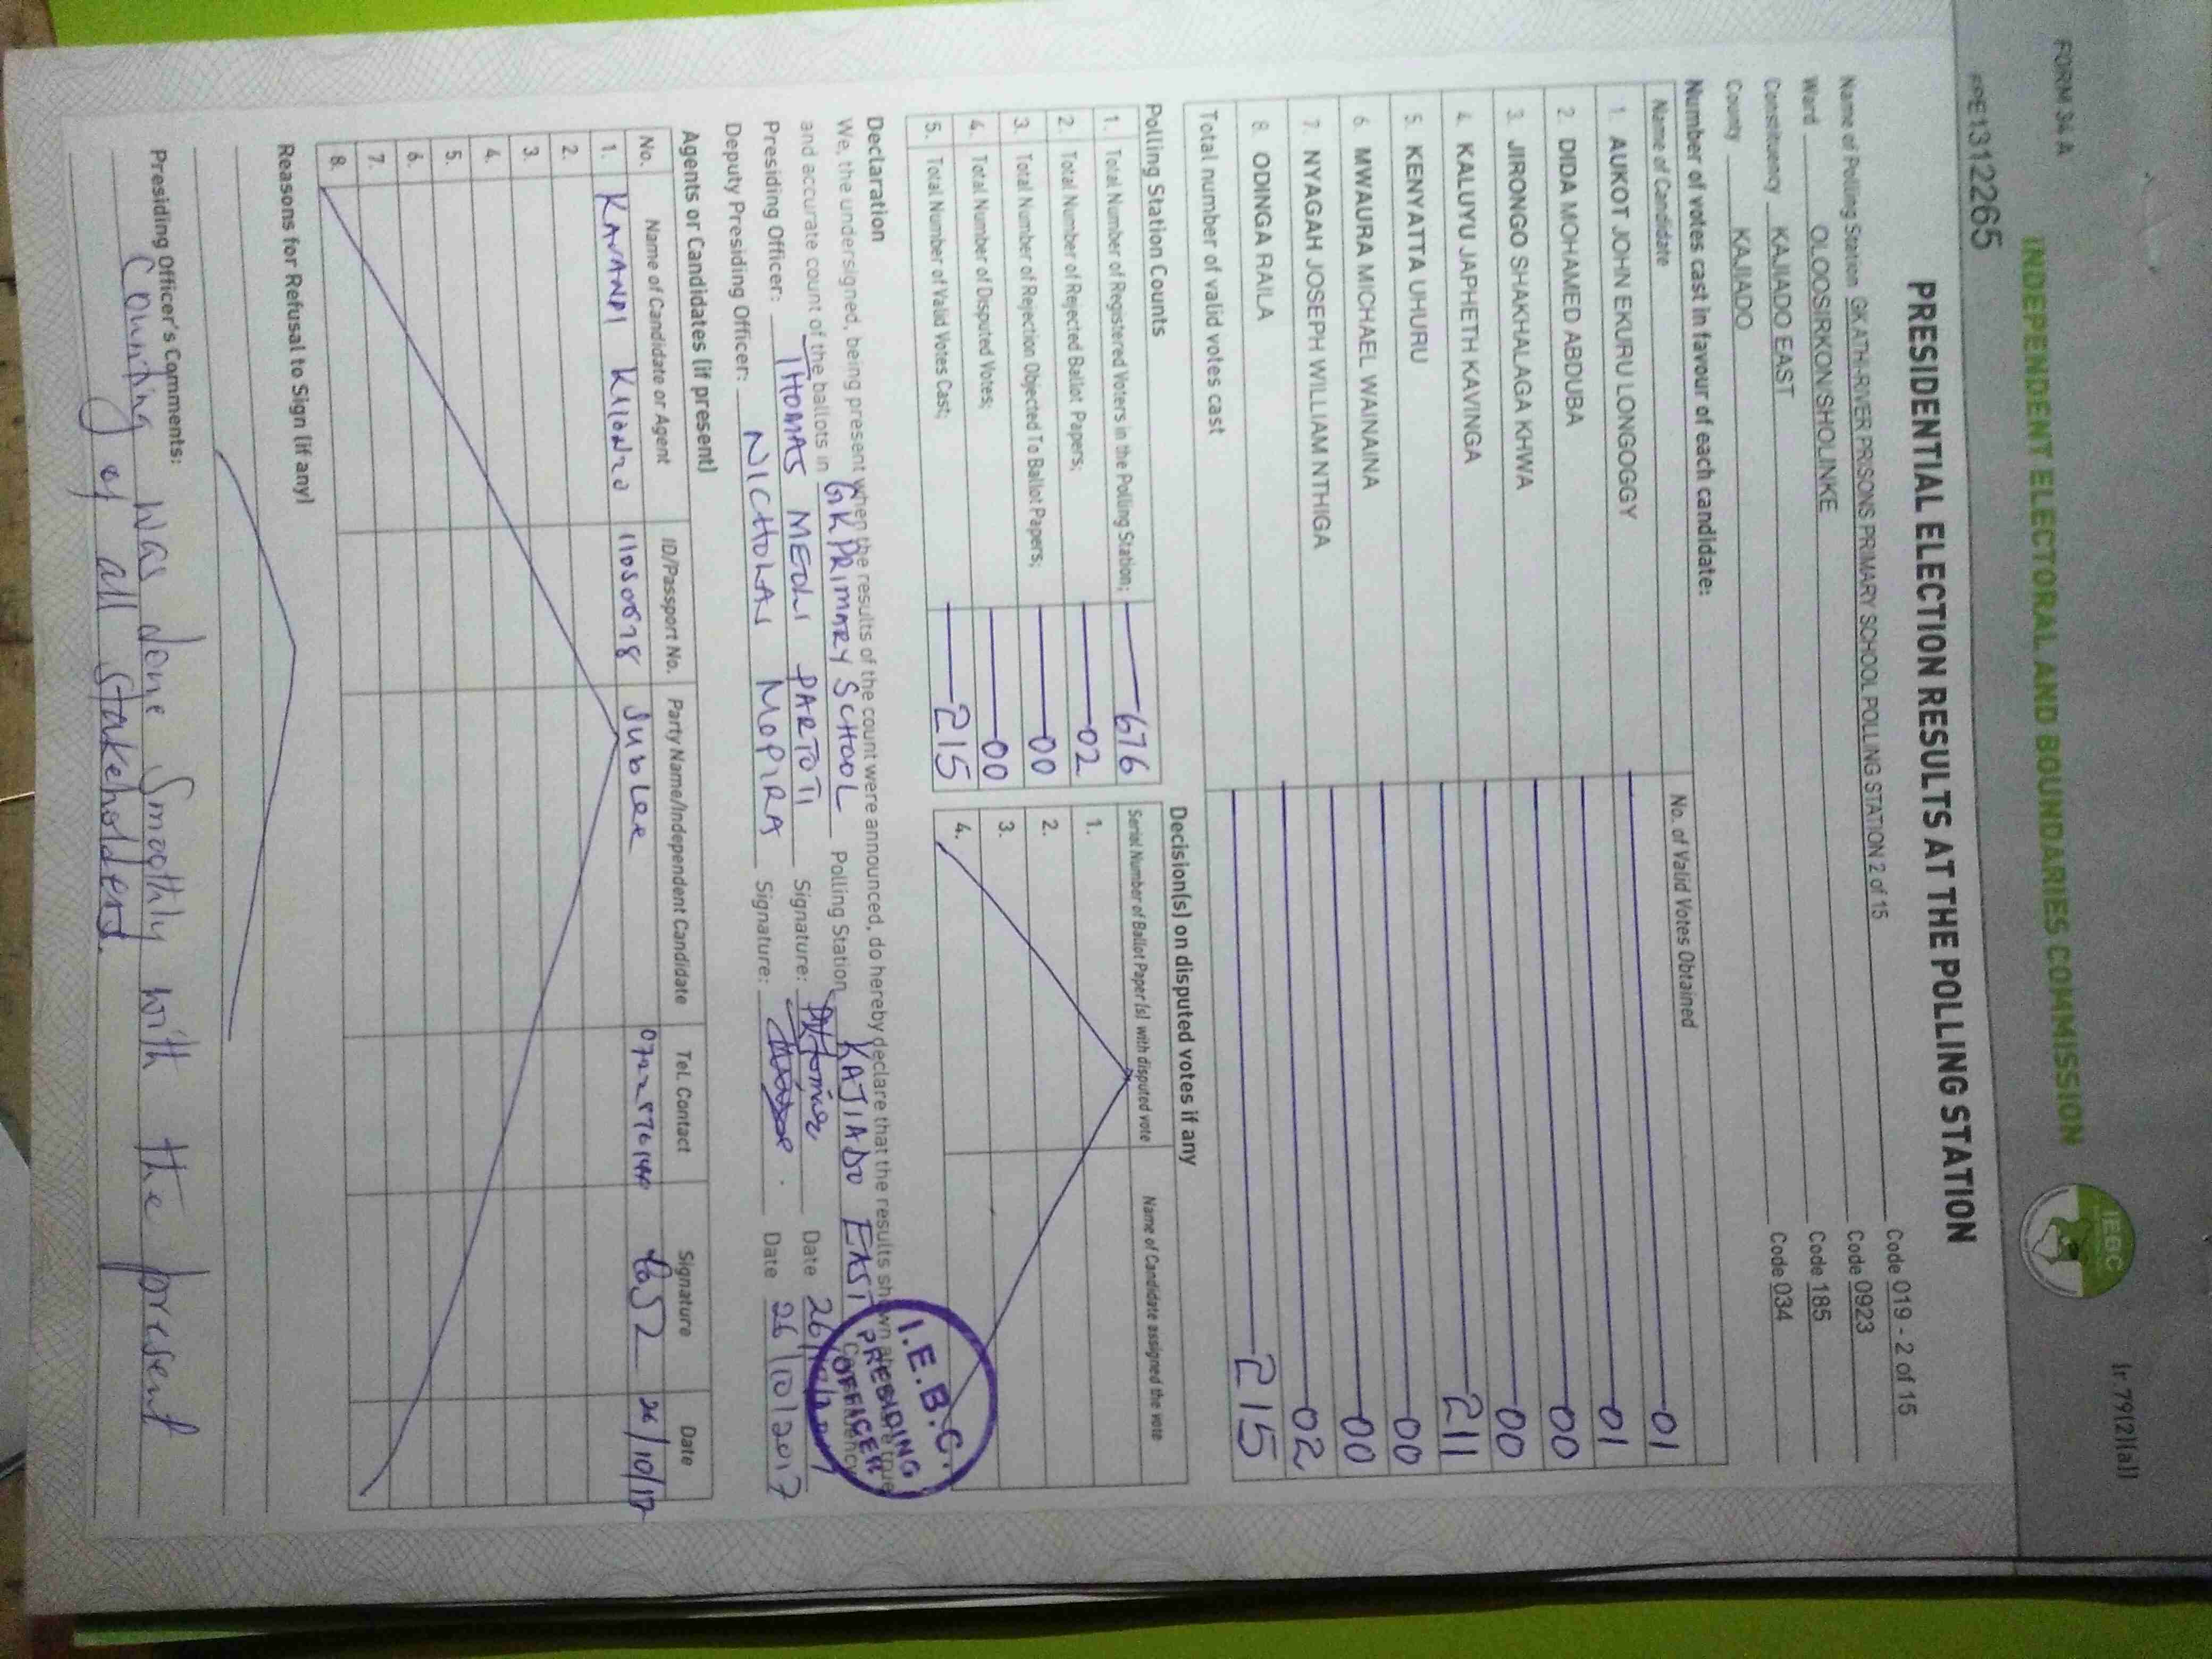 FORM 34 A
(r.79(2)(a))
INDEPENDENT ELECTORAL AND BOUNDARIES COMMISSION
IEBC
PRE1312265
PRESIDENTIAL ELECTION RESULTS AT THE POLLING STATION
Name of Polling Station GK ATHI-RIVER PRISONS PRIMARY SCHOOL POLLING STATION 2 of 15 Code 019 - 2 of 15
Ward OLOOSIRKON/SHOLINKE Code 0923
Constituency KAJIADO EAST Code 185
County KAJIADO Code 034
Number of votes cast in favour of each candidate:
Name of Candidate No. of Valid Votes Obtained
1. AUKOT JOHN EKURU LONGOGGY 01
2. DIDA MOHAMED ABDUBA 01
3. JIRONGO SHAKHALAGA KHWA 00
4. KALUYU JAPHETH KAVINGA 00
5. KENYATTA UHURU 211
6. MWAURA MICHAEL WAINAINA 00
7. NYAGAH JOSEPH WILLIAM NTHIGA 00
8. ODINGA RAILA 02
Total number of valid votes cast 215
Polling Station Counts
1. Total Number of Registered Voters in the Polling Station; 676
2. Total Number of Rejected Ballot Papers; 02
3. Total Number of Rejection Objected To Ballot Papers; 00
4. Total Number of Disputed Votes; 00
5. Total Number of Valid Votes Cast; 215
Decision(s) on disputed votes if any
Serial Number of Ballot Paper (s) with disputed vote Name of Candidate assigned the vote
1.
2.
3.
4.
Declaration
We, the undersigned, being present when the results of the count were announced, do hereby declare that the results shown above are true
and accurate count of the ballots in GK PRIMARY SCHOOL Polling Station KAJIADO EAST Constituency
Presiding Officer: THOMAS MEOLI PARTOTI Signature: Date 26/10/2017
Deputy Presiding Officer: NICHOLAS MOPIRA Signature: Date 26/10/2017
I.E.B.C.
PRESIDING
OFFICER
Agents or Candidates (if present)
No. Name of Candidate or Agent ID/Passport No. Party Name/Independent Candidate Tel. Contact Signature Date
1. 26/10/17
2.
3.
4.
5.
6.
7.
8.
Reasons for Refusal to Sign (if any)
Presiding Officer's Comments:
Counting was done smoothly with the present
of all stakeholders.